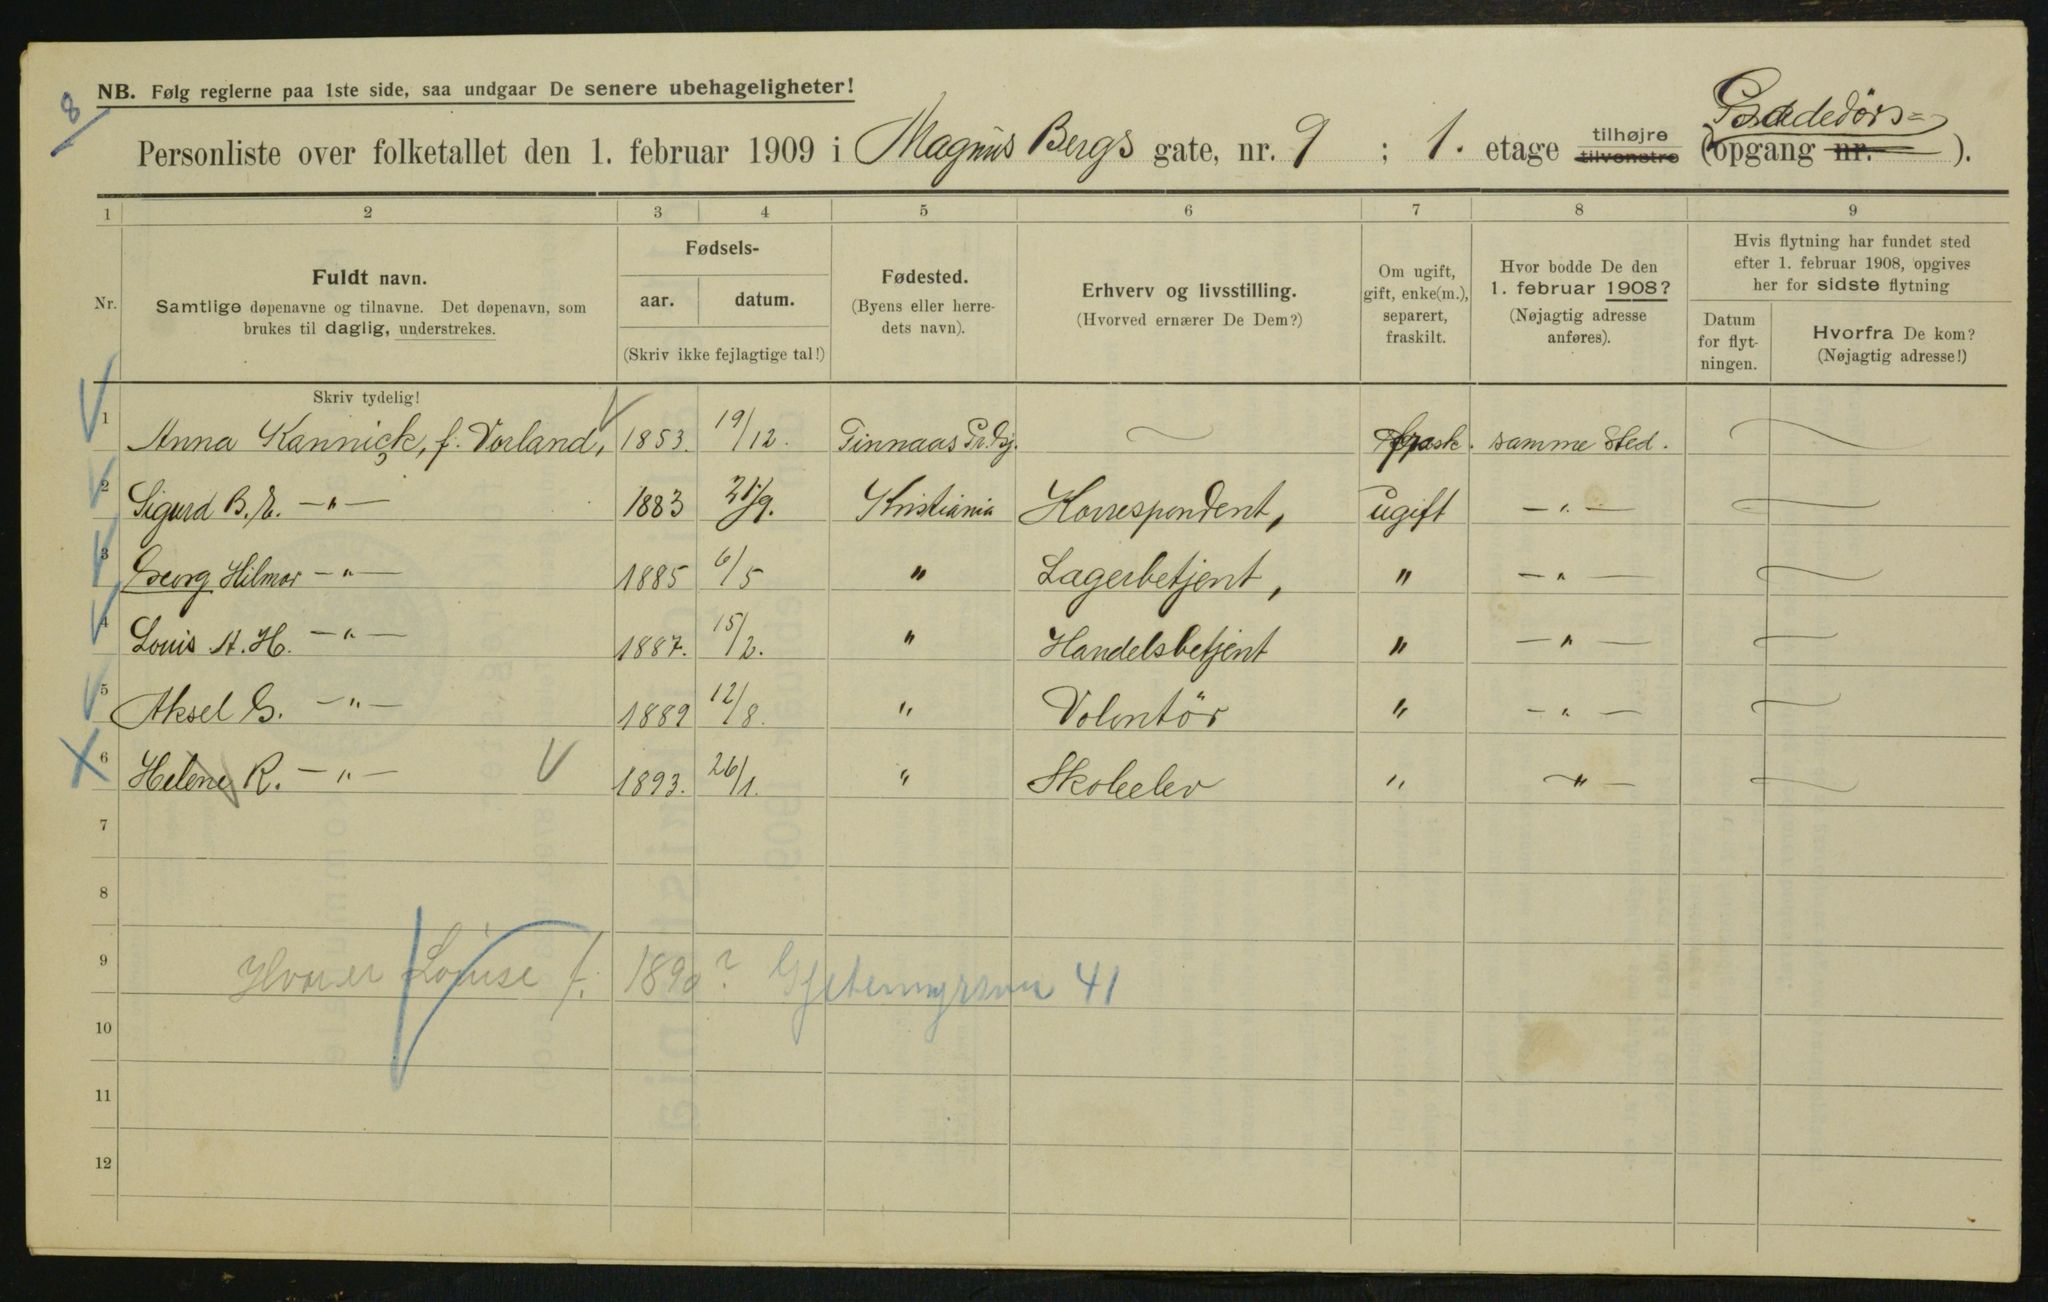 8
NB. Følg reglerne paa 1ste side, saa undgaar De senere ubehageligheter!
Personliste over folketallet den 1. februar 1909 i Magnus Bergs gate, nr. 9 ; 1. etage tilhøjre tilvenstre (Gadedørs= opgang nr. ).
1 2 3 4 5 6 7 8 9
Nr.
Fuldt navn.
Samtlige døpenavne og tilnavne. Det døpenavn, som
brukes til daglig, understrekes.
Fødsels-
aar. datum.
(Skriv ikke fejlagtige tal!)
Fødested.
(Byens eller herre-
dets navn).
Erhverv og livsstilling.
(Hvorved ernærer De Dem?)
Om ugift,
gift, enke(m.),
separert,
fraskilt.
Hvor bodde De den
1. februar 1908?
(Nøjagtig adresse
anføres).
Hvis flytning har fundet sted
efter 1. februar 1908, opgives
her for sidste flytning
Datum
for flyt-
ningen.
Hvorfra De kom?
(Nøjagtig adresse!)
Skriv tydelig!
1 Anna Kannick, f. Vorland, 1853. 19/12. Finnaas Pr.dsj. — frask. samme Sted. —
2 Sigurd B. E. —"— 1883 21/9. Kristiania Korrespondent, ugift —"— —
3 Georg Hilmar —"— 1885 6/5 " Lagerbetjent, " —"— —
4 Louis A. H. —"— 1887. 15/2. " Handelsbetjent " —"— —
5 Aksel G. —"— 1889 12/8. " Volontör " —"— —
6 Helene R. —"— 1893. 26/1. " Skoleelev " —"— —
7
8
9 Louise f. 1890? 41
10
11
12